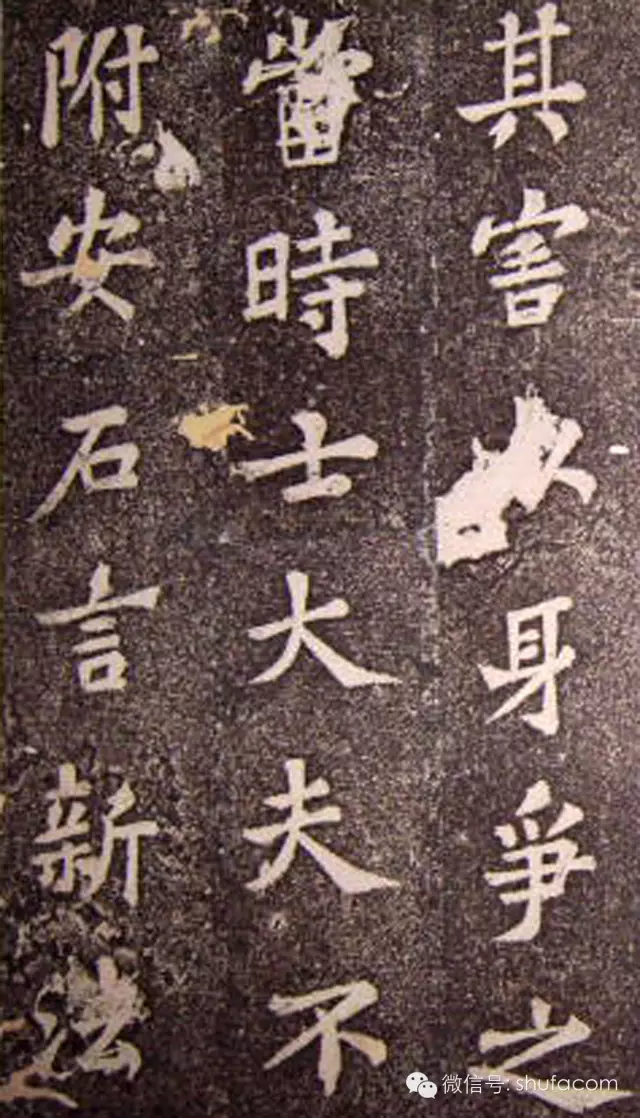 其害以身爭之
當時士大夫不
附安石言新法
微信号: shufacom